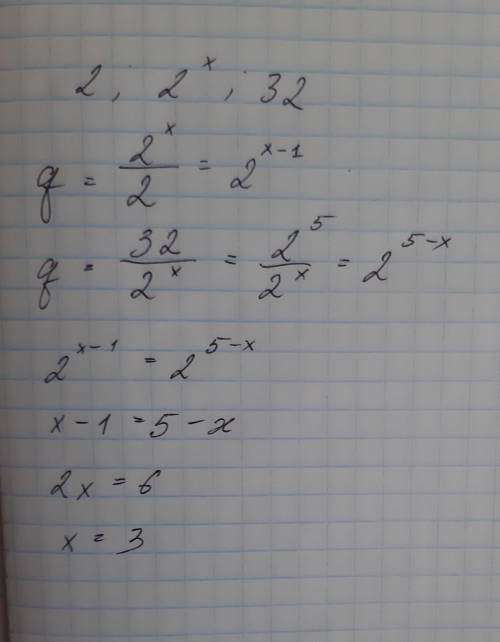 2 ; 2^x ; 32
q = 2^x/2 = 2^(x-1)
q = 32/2^x = 2^5/2^x = 2^(5-x)
2^(x-1) = 2^(5-x)
x - 1 = 5 - x
2x = 6
x = 3